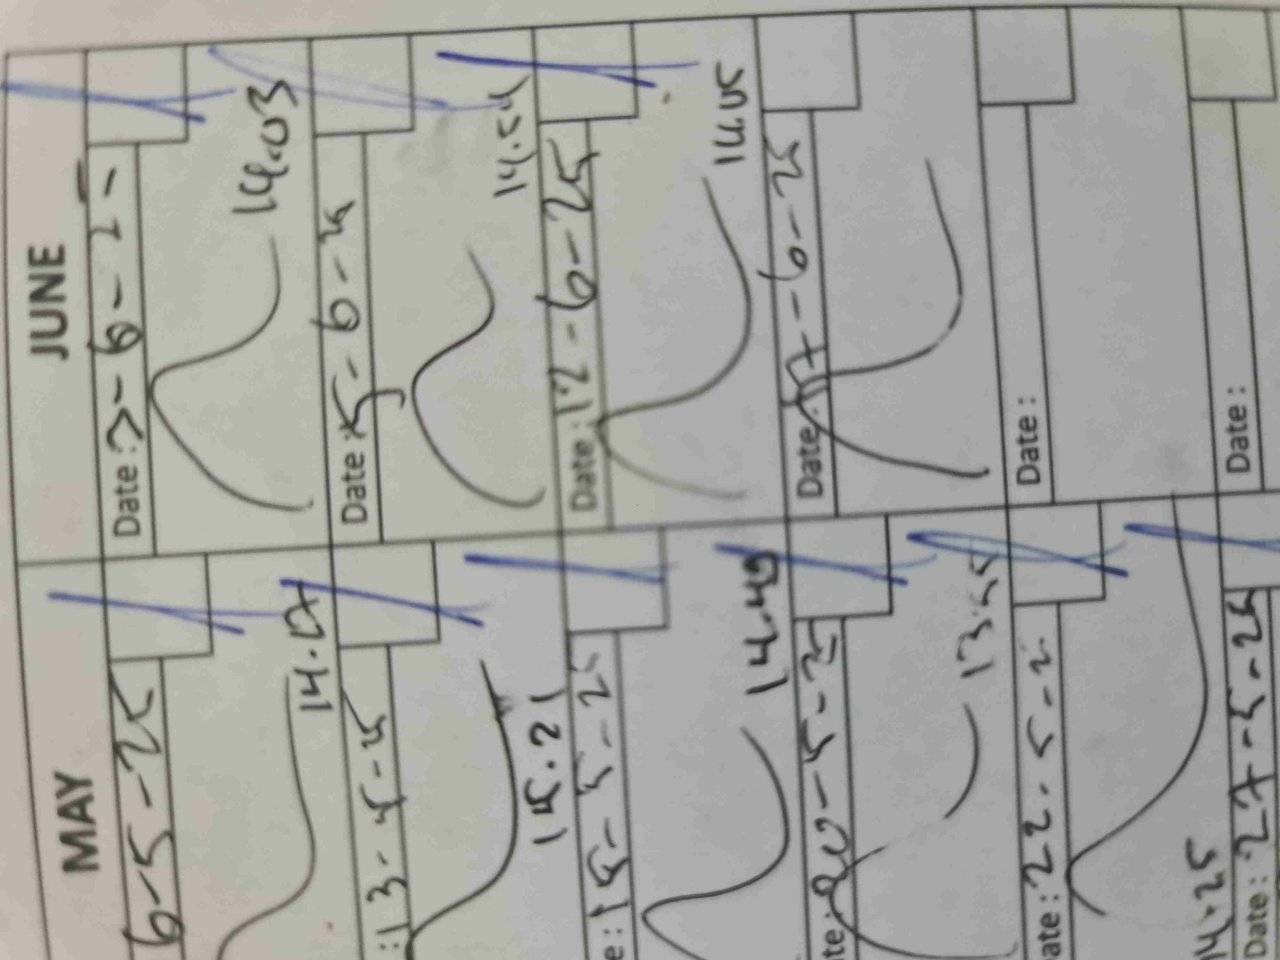 MAY
6-5-25
14.17
:13-5-25
15.21
e: 15-5-25
14.49
te: 20-5-25
13.55
ate: 22-5-2
14.25
Date: 27-5-25
JUNE
Date: 3-6-2
14.03
Date: 5-6-25
14.54
Date: 12-6-25
14.05
Date: 17-6-25
Date:
Date: